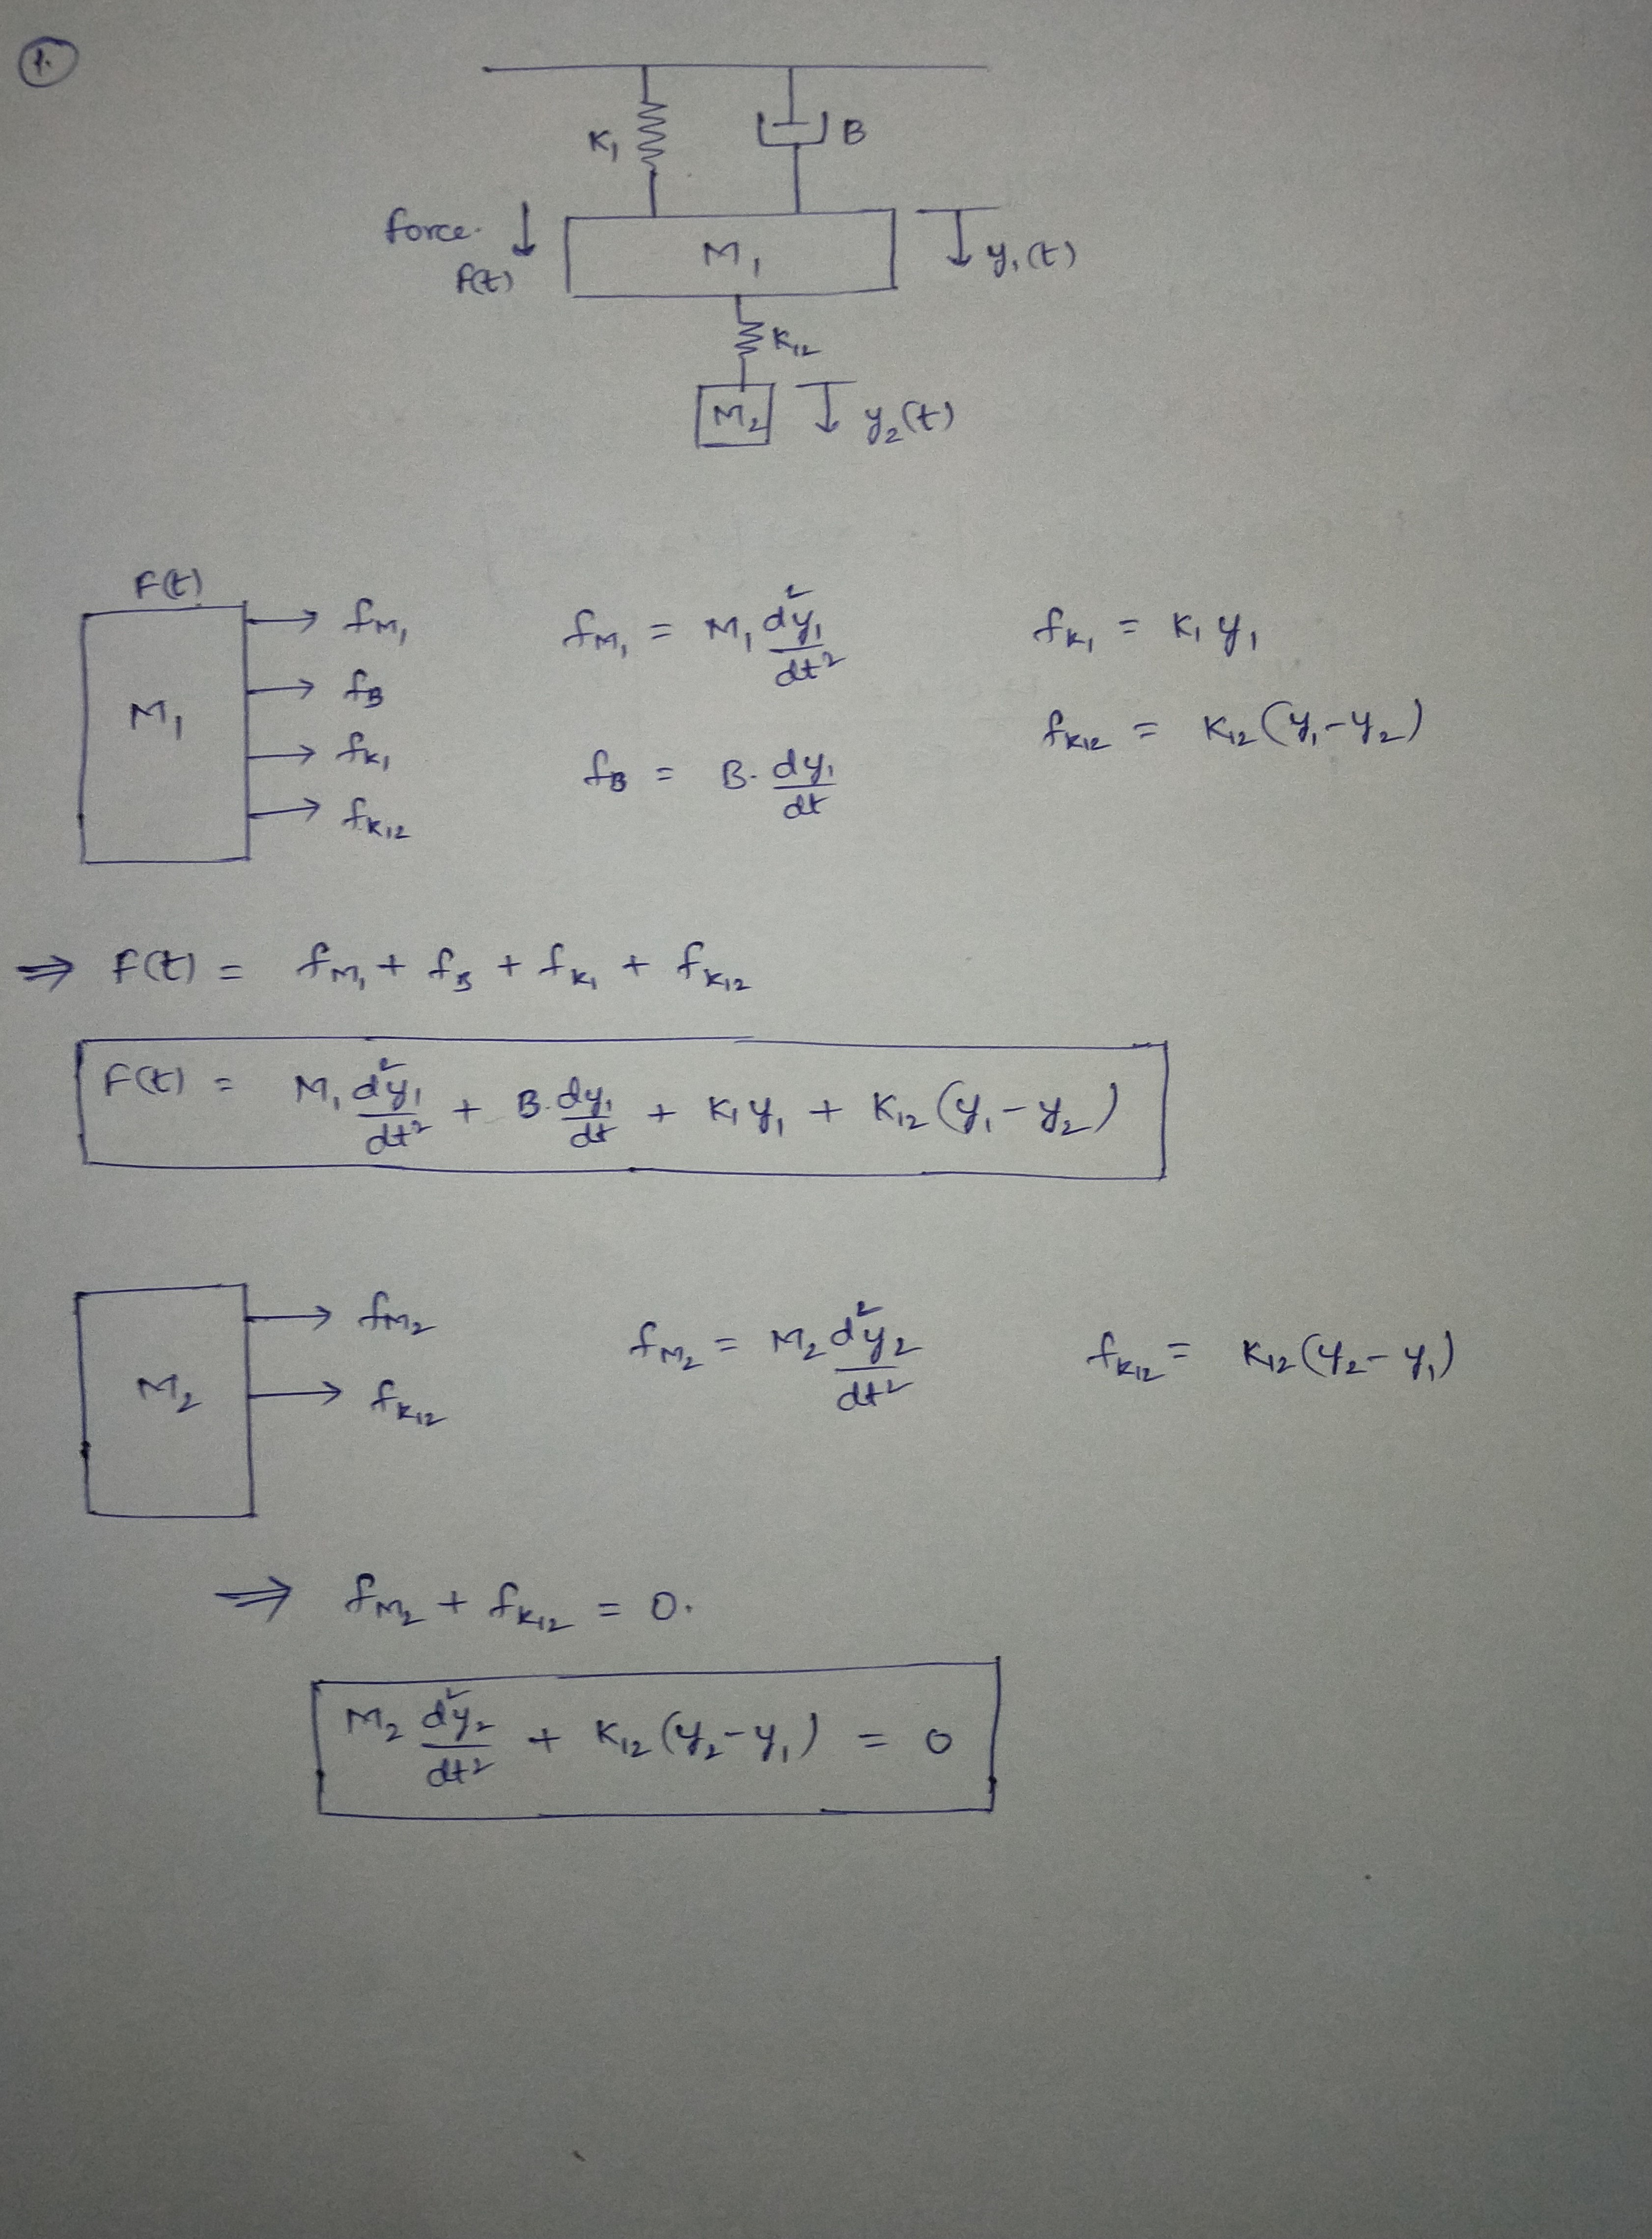 1.
K₁
B
force
f(t)
M₁
y₁(t)
K₁₂
M₂
y₂(t)
F(t)
M₁
fM₁
fB
fK₁
fK₁₂
fM₁ = M₁ d²y₁/dt²
fK₁ = K₁ y₁
fB = B. dy₁/dt
fK₁₂ = K₁₂ (y₁-y₂)
⇒ F(t) = fM₁ + fB + fK₁ + fK₁₂
F(t) = M₁ d²y₁/dt² + B. dy₁/dt + K₁ y₁ + K₁₂ (y₁-y₂)
M₂
fM₂
fK₁₂
fM₂ = M₂ d²y₂/dt²
fK₁₂ = K₁₂ (y₂-y₁)
⇒ fM₂ + fK₁₂ = 0.
M₂ d²y₂/dt² + K₁₂ (y₂-y₁) = 0